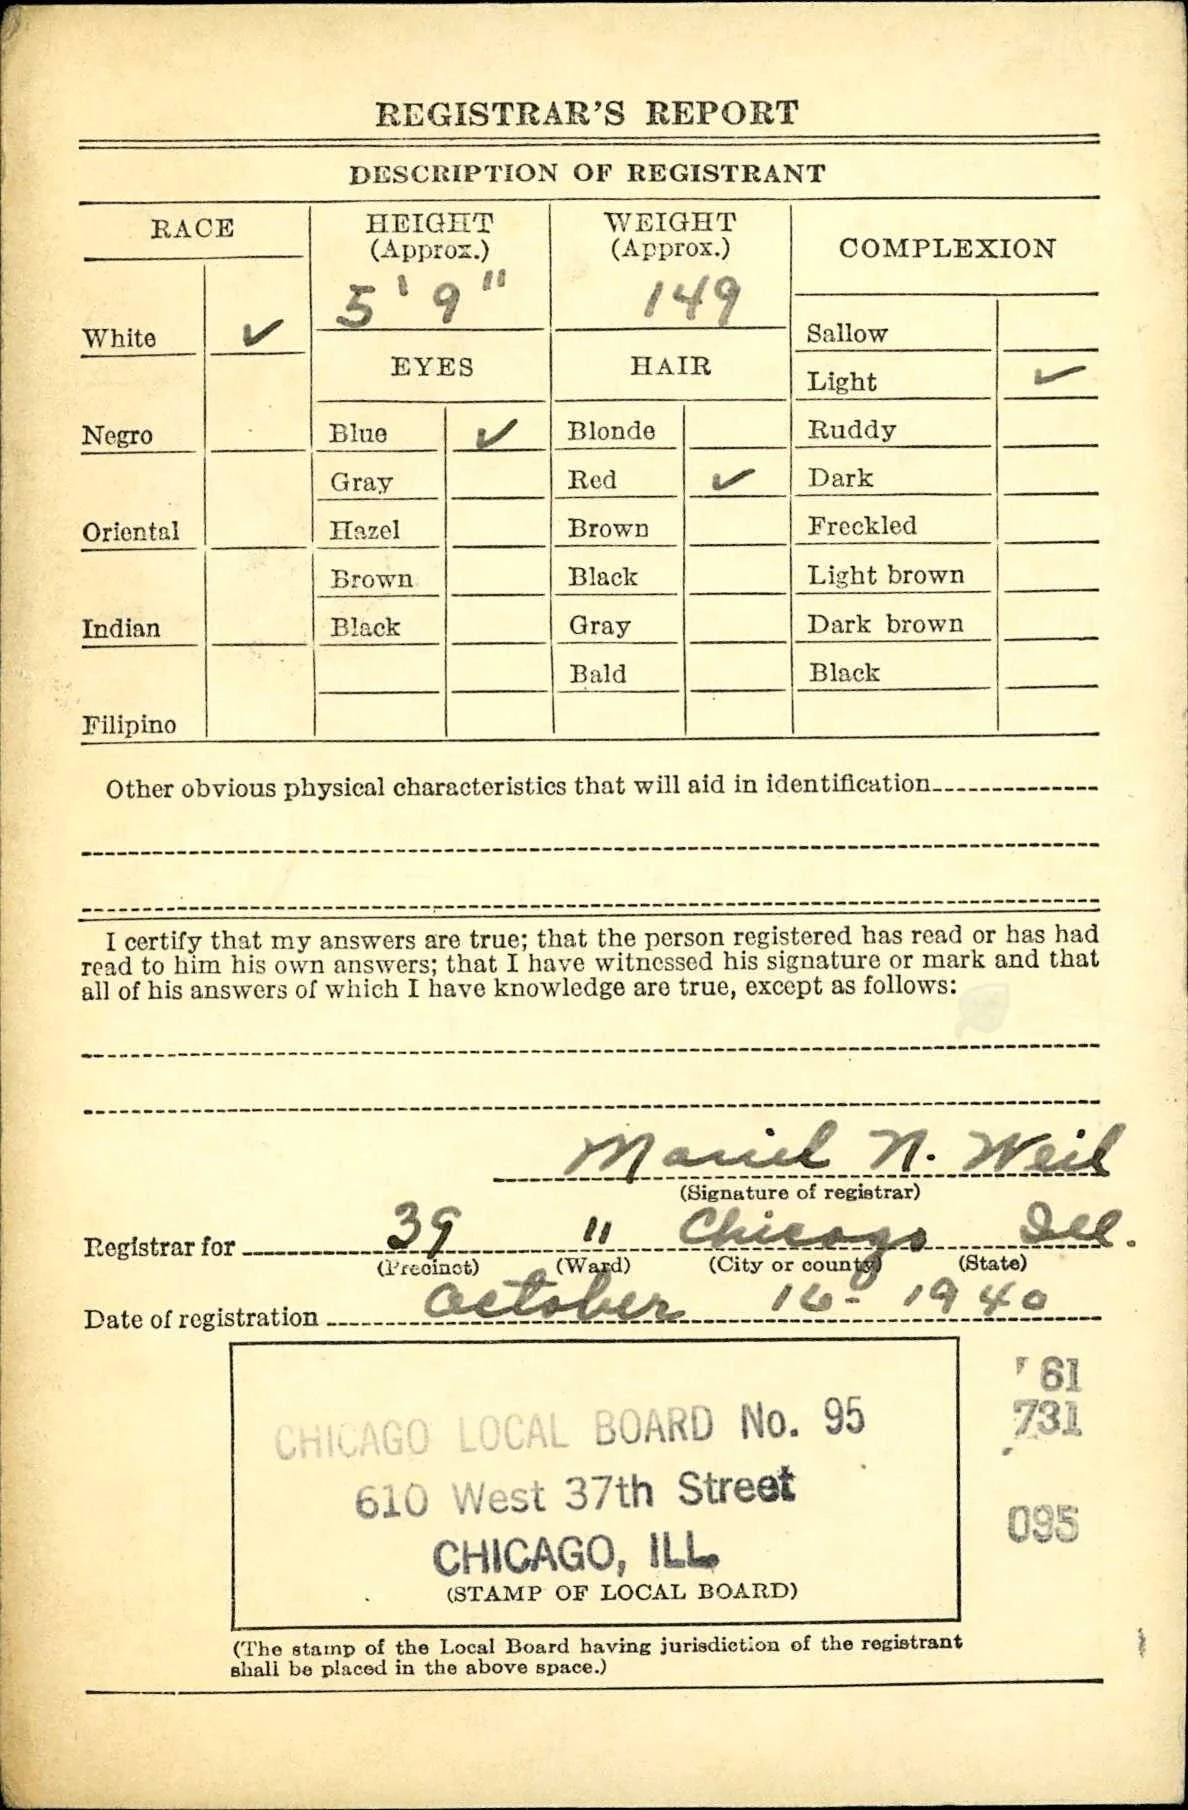 REGISTRAR'S REPORT
DESCRIPTION OF REGISTRANT
RACE
HEIGHT
(Approx.)
5' 9"
WEIGHT
(Approx.)
149
COMPLEXION
White ✓
Negro
Oriental
Indian
Filipino
EYES
Blue ✓
Gray
Hazel
Brown
Black
HAIR
Blonde
Red ✓
Brown
Black
Gray
Bald
Sallow
Light ✓
Ruddy
Dark
Freckled
Light brown
Dark brown
Black
Other obvious physical characteristics that will aid in identification
I certify that my answers are true; that the person registered has read or has had
read to him his own answers; that I have witnessed his signature or mark and that
all of his answers of which I have knowledge are true, except as follows:
N. Weil
(Signature of registrar)
Registrar for 39 11 Chicago Ill.
(Precinct) (Ward) (City or county) (State)
Date of registration October 16- 1940
CHICAGO LOCAL BOARD No. 95
610 West 37th Street
CHICAGO, ILL.
(STAMP OF LOCAL BOARD)
61
731
095
(The stamp of the Local Board having jurisdiction of the registrant
shall be placed in the above space.)